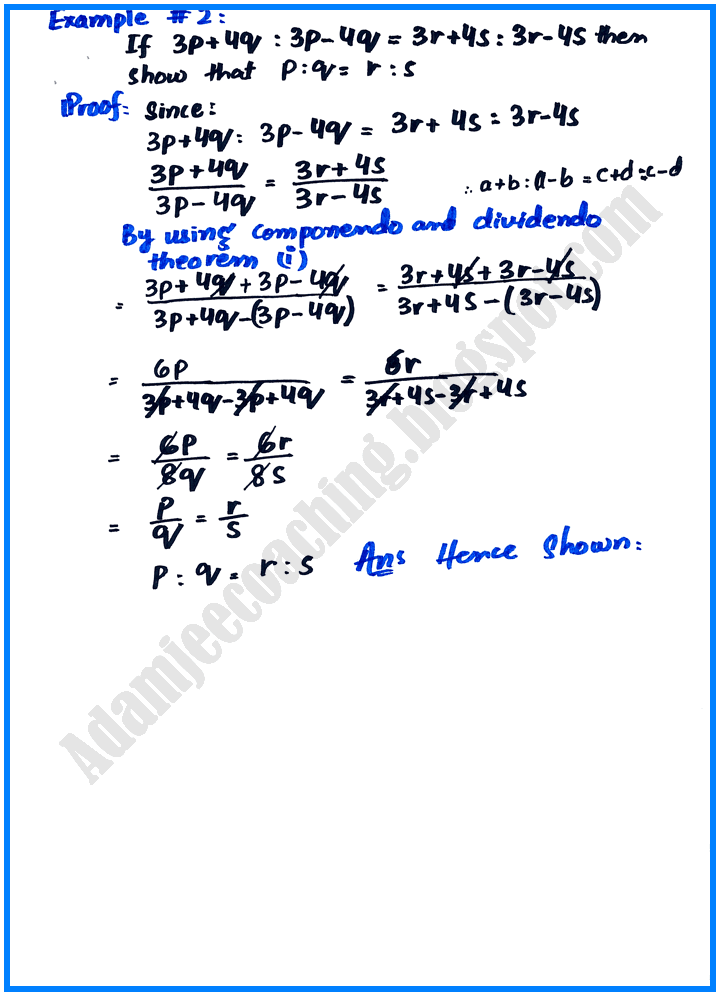 Example #2:
If 3p+4q : 3p-4q = 3r+4s : 3r-4s then
show that p:q = r:s
Proof: Since:
3p+4q : 3p-4q = 3r+4s = 3r-4s
3p+4q/3p-4q = 3r+4s/3r-4s ∴ a+b : a-b = c+d : c-d
By using componendo and dividendo
theorem (i)
= 3p+4q+3p-4q/3p+4q-(3p-4q) = 3r+4s+3r-4s/3r+4s-(3r-4s)
= 6p/3p+4q-3p+4q = 6r/3r+4s-3r+4s
= 6p/8q = 6r/8s
= p/q = r/s
p : q = r : s Ans Hence Shown:
Adamjeecoaching.blogspot.com